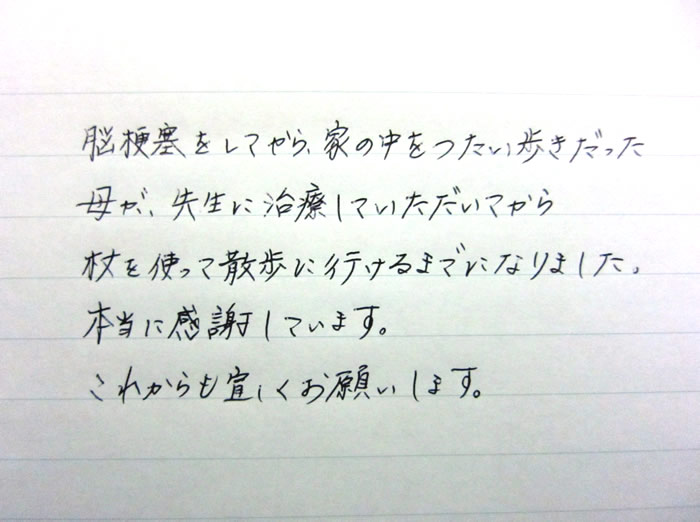 脳梗塞をしてから、家の中をつたい歩きだった
母が、先生に治療していただいてから
杖を使って散歩に行けるまでになりました。
本当に感謝しています。
これからも宜しくお願いします。